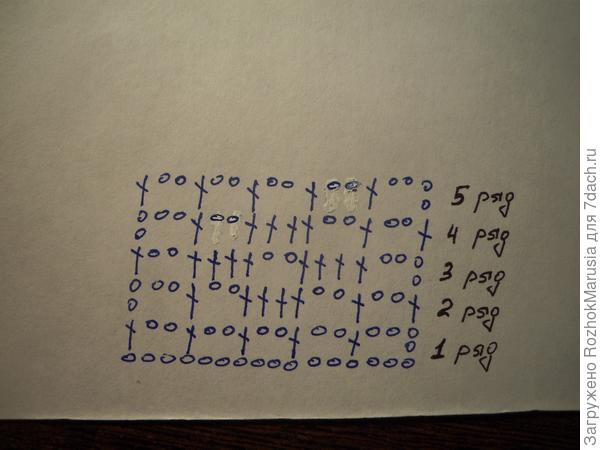 5 ряд
4 ряд
3 ряд
2 ряд
1 ряд
Загружено RozhokMarusia для 7dach.ru